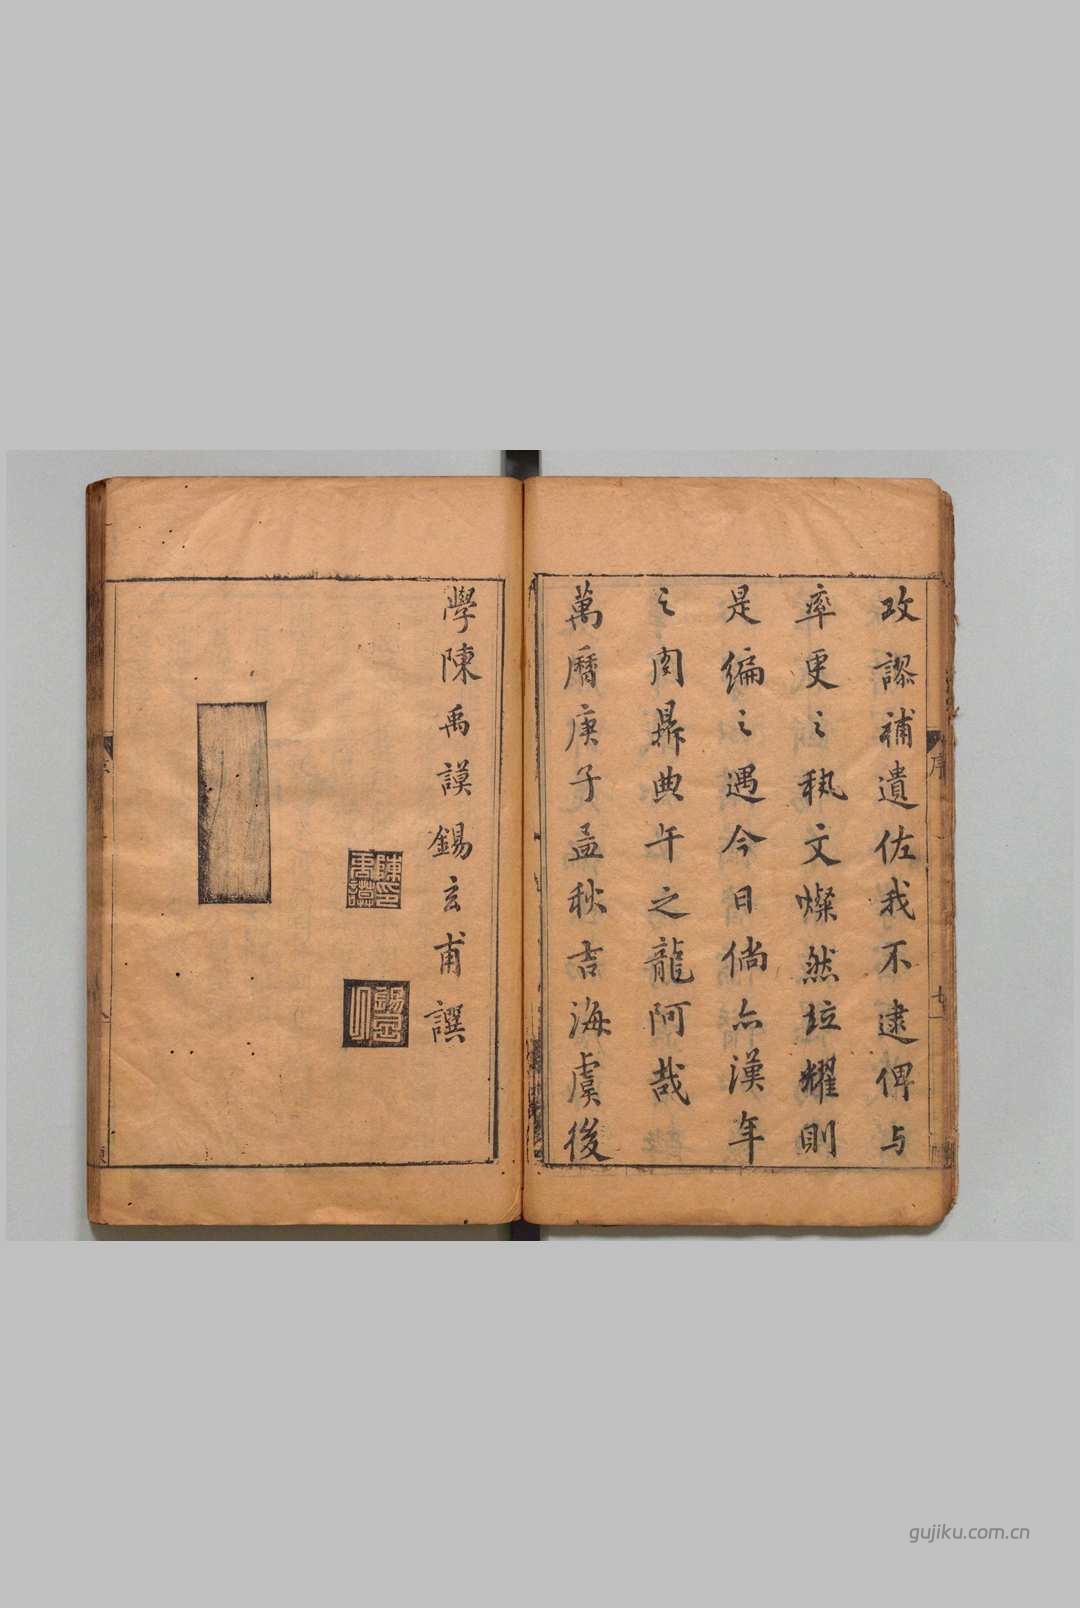 攻謬補遺佐我不逮俾与
率更之秇文燦然竝耀則
是編之遇今日倘亦漢年
之閎鼎典午之龍阿哉
萬曆庚子孟秋吉海虞後
學陳禹謨錫玄甫譔
陳印禹謨
序
七
gujiku.com.cn